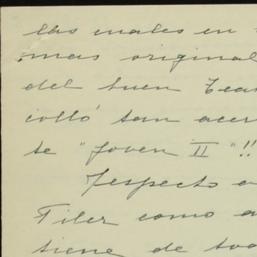 las cuales en
mas original
del buen Tea
colló tan acer
te "Joven II"!!
Respecto a
Tiler como a
tiene de tod